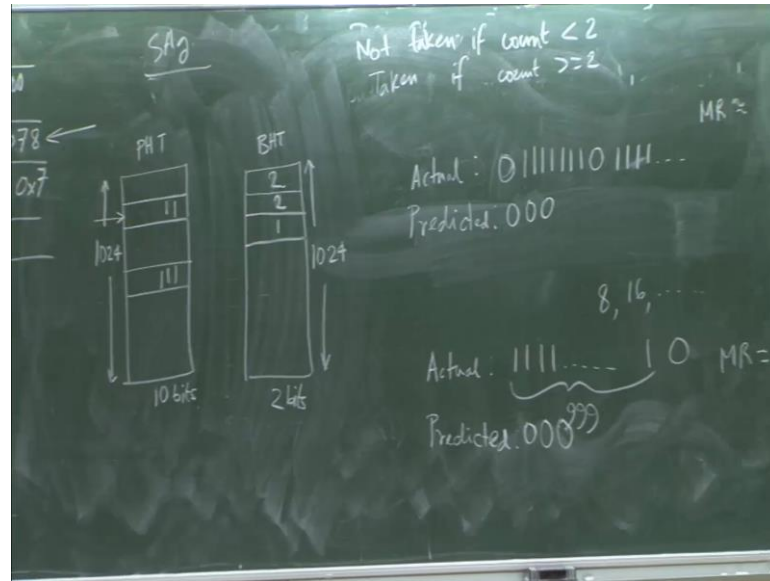 SAg
Not taken if count < 2
Taken if count >= 2
MR ≈
78 ←
0x7
PHT
BHT
2
11
2
1
1024
1024
111
10 bits
2 bits
Actual: 0 11111111 0 1111....
Predicted: 000
8, 16, .....
Actual: 1111..... 1 0 MR ≈
999
Predicted: 000